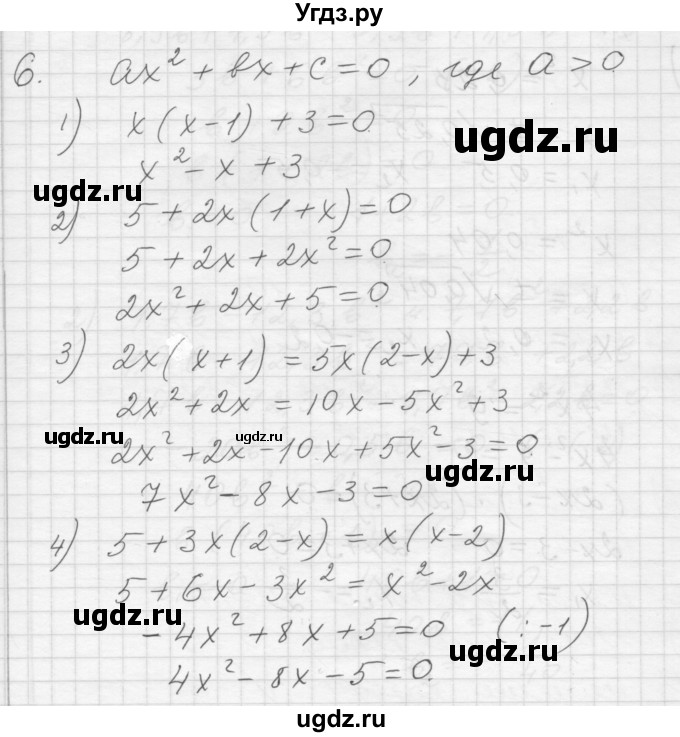 Угдз.ру
6. ax² + bx + c = 0, где a > 0
1) x(x-1) + 3 = 0
ugdz.ru
x² - x + 3
ugdz.ru
2) 5 + 2x(1+x) = 0
5 + 2x + 2x² = 0
ugdz.ru
2x² + 2x + 5 = 0
3) 2x(x+1) = 5x(2-x) + 3
2x² + 2x = 10x - 5x² + 3
ugdz.ru ugdz.ru
2x² + 2x - 10x + 5x² - 3 = 0
ugdz.ru
7x² - 8x - 3 = 0
4) 5 + 3x(2-x) = x(x-2)
5 + 6x - 3x² = x² - 2x
ugdz.ru
-4x² + 8x + 5 = 0 (: -1)
ugdz.ru
4x² - 8x - 5 = 0.
ugdz.ru